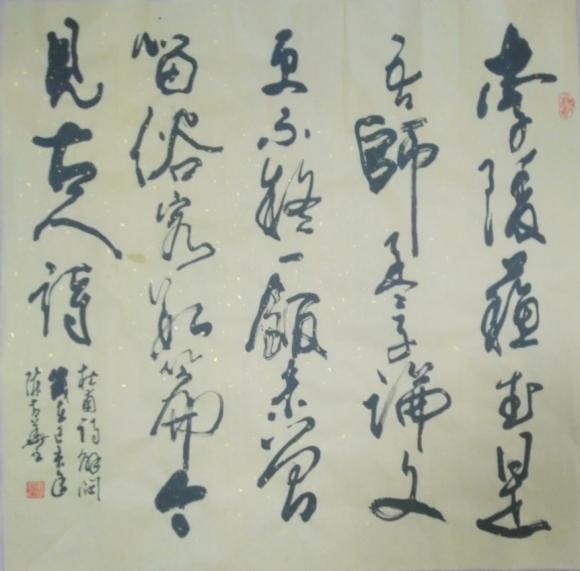 李陵蘇武是
吾師孟子論文
更不疑一飯未曾
留俗客數篇今
見古人詩
杜甫詩解悶
歲在未年